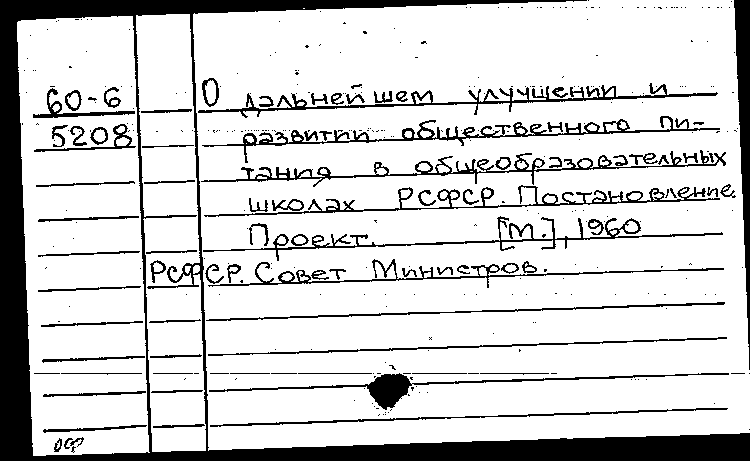 60-6 О дальнейшем улучшении и
5208 развитии общественного пи-
тания в общеобразовательных
школах РСФСР. Постановление.
Проект. [М.], 1960
РСФСР. Совет Министров.